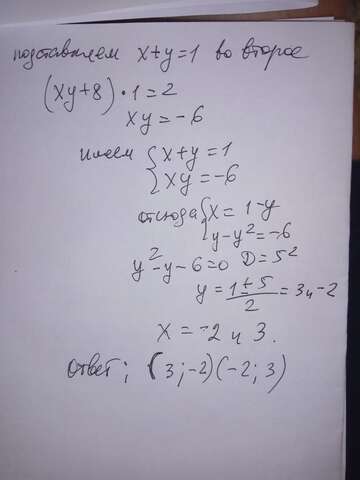 подставляем x+y=1 во второе
(xy+8)·1=2
xy=-6
имеем { x+y=1
xy=-6
отсюда { x=1-y
y-y²=-6
y²-y-6=0 D=5²
y=1±5/2=3и-2
x=-2 и 3.
ответ; (3;-2)(-2;3)